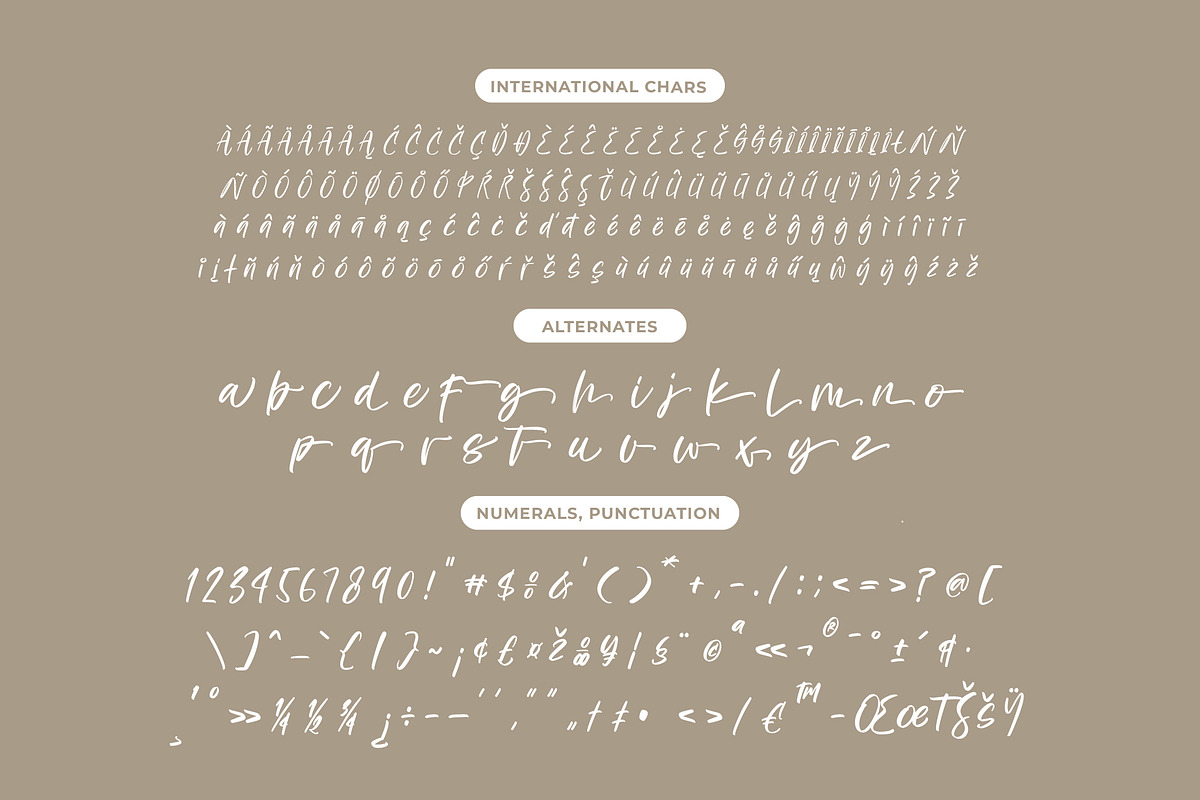 INTERNATIONAL CHARS
ÀÁÃÄÅĀÅĄĆĈĊČÇĎĐÈÉÊËĒĖĘĚĜĠÌÍÎÏĨĪĮİŁŃŇ
ÑÒÓÔÕÖØŌŐŔŘŠŚŜŞŤÙÚÛÜŨŪŮŰŲŸÝŶŹŻŽ
àáâãäåāåąçćĉċčďđèéêëēėęěĝġģìíîïĩī
įłñńňòóôõöōőŕřšŝşùúûüũūůűųŵýÿŷźżž
ALTERNATES
abcdefghijklmno
pqrstuvwxyz
NUMERALS, PUNCTUATION
1234567890!"#$%&'()*+,-./:;<=>?@[
\]^_`{|}~¡¢£¤Ž‰¥¦§¨©ª«¬®¯°±´¶·
¸¹º»¼½¾¿÷–—‘’‚“”„†‡•<>/€™−ŒœŤŠšŸ